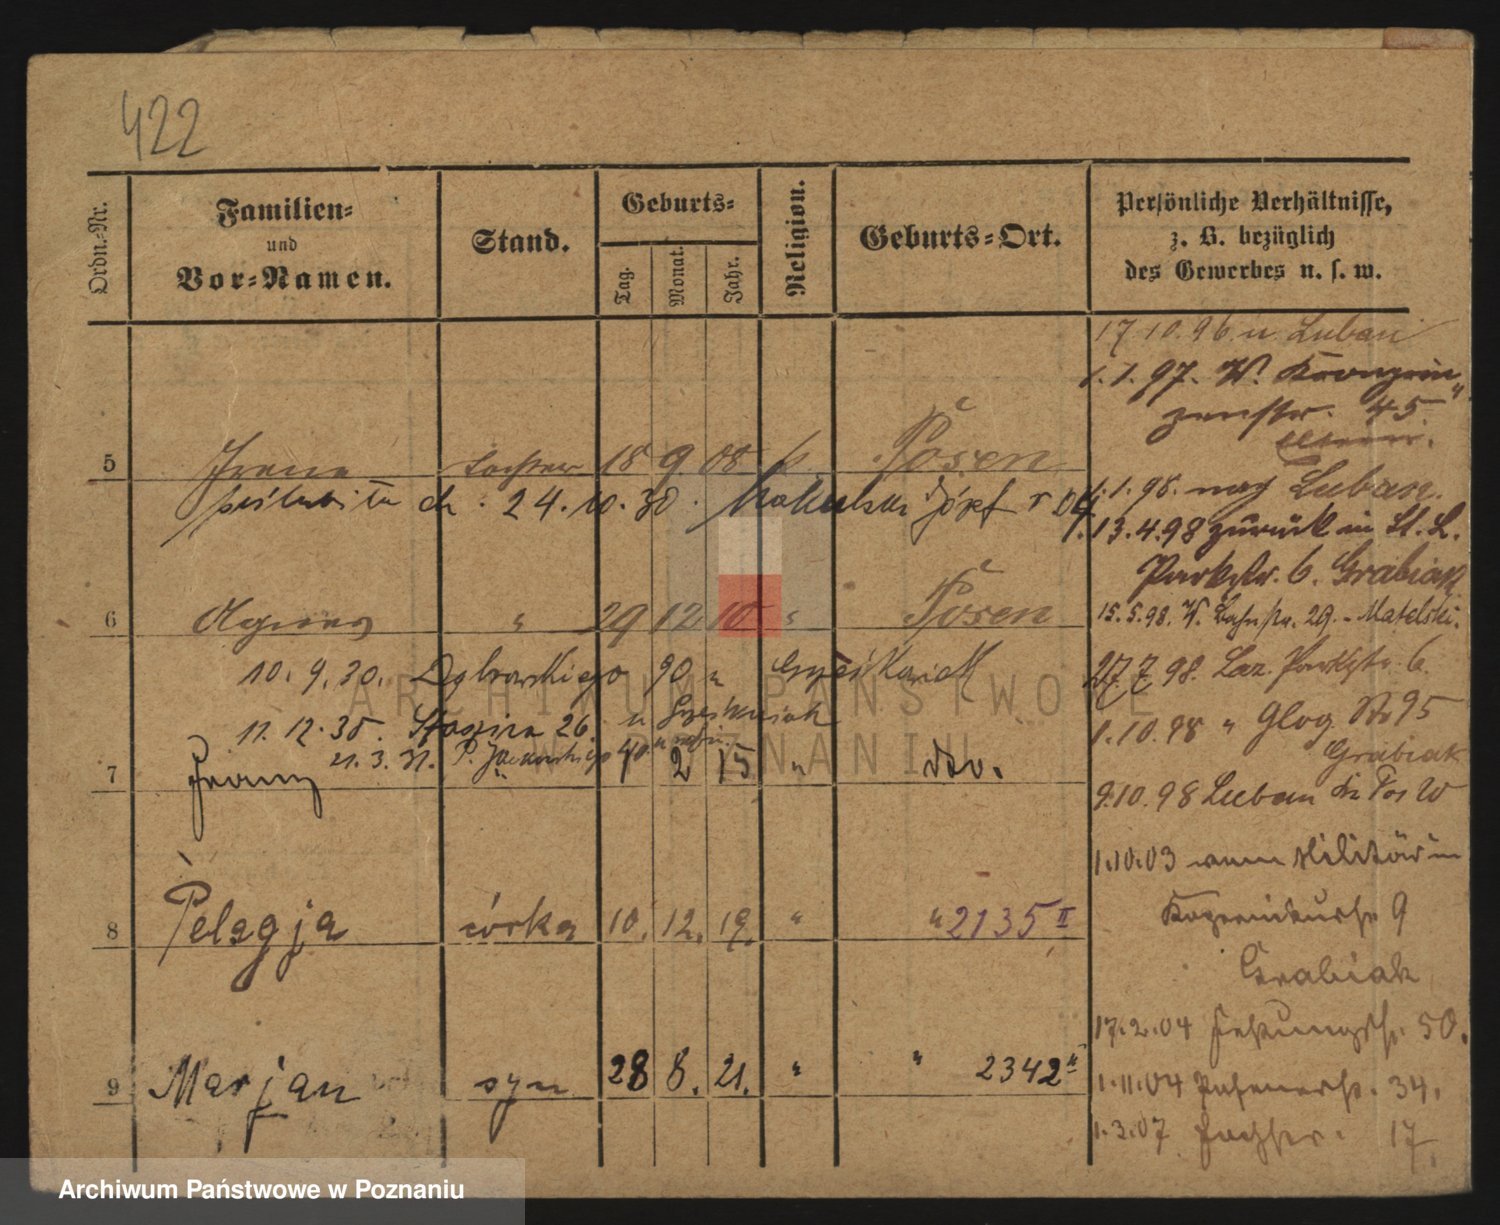 422
Ordn.-Nr.
Familien-
und
Vor-Namen.
Stand.
Geburts-
Tag.
Monat.
Jahr.
Religion.
Geburts-Ort.
Persönliche Verhältnisse,
z. B. bezüglich
des Gewerbes u. s. w.
17 10. 96. n Luban
1. 1. 97. W. Kronprin
zenstr. 45
5 Irena Tochter 18 9 08 k. Posen
24. 10. 30. Józef
1. 1. 98. nach Luban.
13. 4. 98 zurück in St. L.
Parkstr. 6. Grabiak
6 Agnes " 29 12 10 " Posen
15. 5. 98. W. Bahnstr. 29. - Matelski.
10. 9. 30. Dąbrowskiego 90 u Grześkowiak
27. 7. 98. Laz. Parkstr. 6.
11. 12. 35. 26. u
1. 10. 98 " Glog. Str 95
Grabiak
21. 3. 31. P. Jackowskiego 40
7 Franz " 1 2 15 " dto.
9. 10. 98 Luban
1. 10. 03 vom Militär in
8 Pelagja córka 10. 12. 19. " " 2135 II
9
Grabiak
17. 2. 04 50.
9 Marjan syn 28 8. 21. " " 2342 II
1. 11. 04 34.
1. 3. 07 17
ARCHIWUM PAŃSTWOWE
W POZNANIU
Archiwum Państwowe w Poznaniu